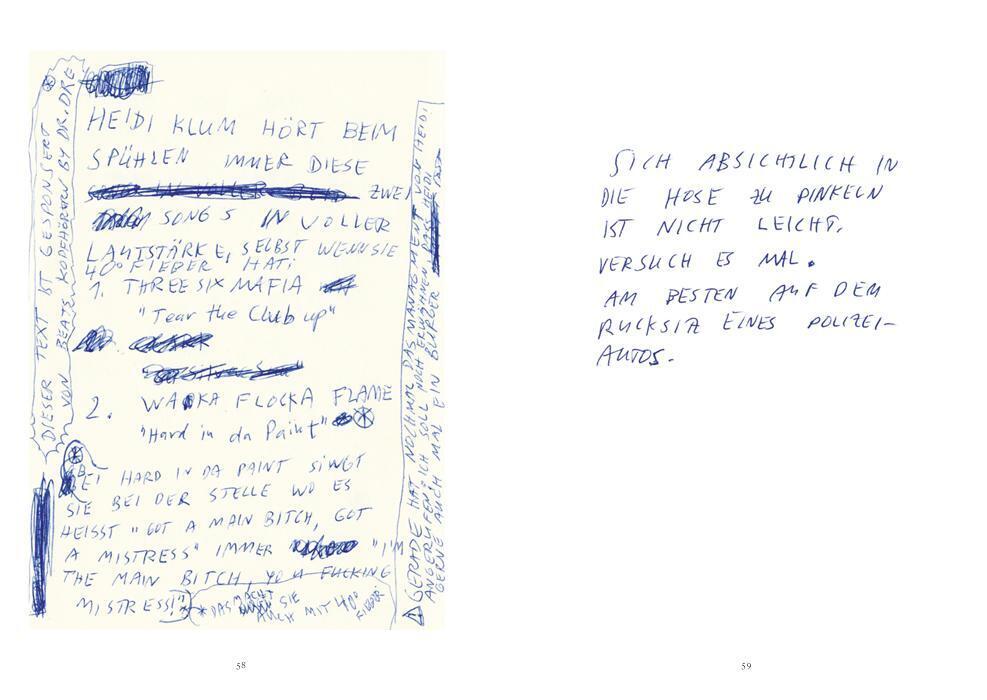 DIESER TEXT IST GESPONSERT
VON BEATS KOPFHÖRERN BY DR. DRE
HEIDI KLUM HÖRT BEIM
SPÜHLEN IMMER DIESE
ZWEI
SONGS IN VOLLER
LAUTSTÄRKE, SELBST WENN SIE
40° FIEBER HAT:
1. THREE SIX MAFIA
"Tear the Club up"
2. WAKA FLOCKA FLAME
"Hard in da Paint"
BEI HARD IN DA PAINT SINGT
SIE BEI DER STELLE WO ES
HEISST "GOT A MAIN BITCH, GOT
A MISTRESS" IMMER "I'M
THE MAIN BITCH, YOU FUCKING
MISTRESS!"
* DAS MACHT
SIE
AUCH MIT 40°
FIEBER
GERADE HAT NOCHMAL DAS MANAGMENT VON HEIDI
ANGERUFEN, ICH SOLL NOCH ERWÄHNEN DASS HEIDI
GERNE AUCH MAL EIN BURGER ISST
58
SICH ABSICHTLICH IN
DIE HOSE ZU PINKELN
IST NICHT LEICHT.
VERSUCH ES MAL.
AM BESTEN AUF DEM
RÜCKSITZ EINES POLIZEI-
AUTOS.
59